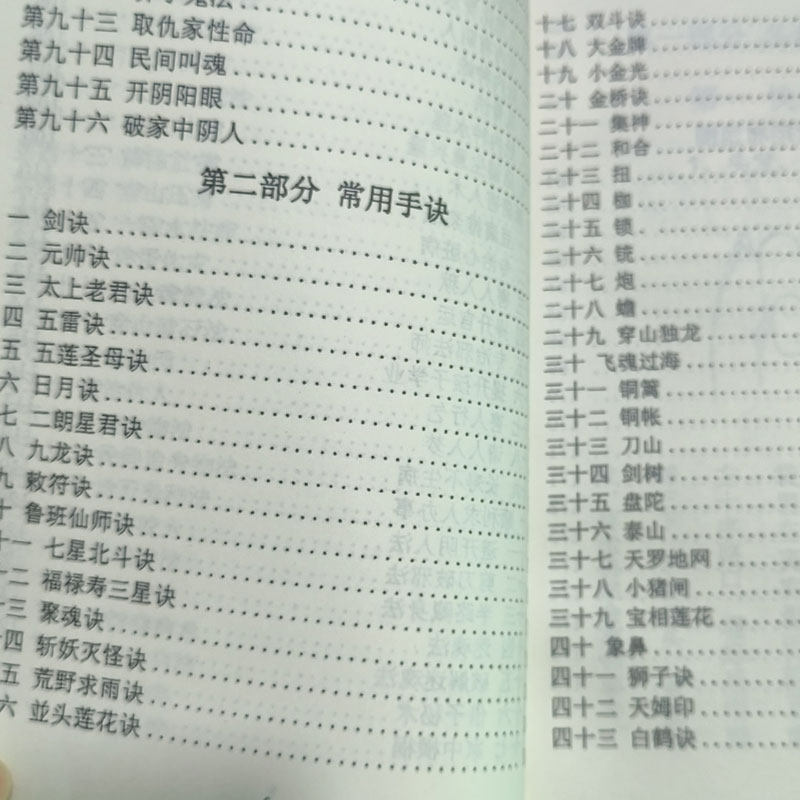 第九十三 取仇家性命
第九十四 民间叫魂
第九十五 开阴阳眼
第九十六 破家中阴人
第二部分 常用手诀
一 剑诀
二 元帅诀
三 太上老君诀
四 五雷诀
五 五莲圣母诀
六 日月诀
七 二朗星君诀
八 九龙诀
九 敕符诀
十 鲁班仙师诀
十一 七星北斗诀
十二 福禄寿三星诀
十三 聚魂诀
十四 斩妖灭怪诀
五 荒野求雨诀
六 並头莲花诀
十七 双斗诀
十八 大金牌
十九 小金光
二十 金桥诀
二十一 集神
二十二 和合
二十三 扭
二十四 枷
二十五 锁
二十六 铳
二十七 炮
二十八 蟾
二十九 穿山独龙
三十 飞魂过海
三十一 铜篱
三十二 铜帐
三十三 刀山
三十四 剑树
三十五 盘陀
三十六 泰山
三十七 天罗地网
三十八 小猪闸
三十九 宝相莲花
四十 象鼻
四十一 狮子诀
四十二 天姆印
四十三 白鹤诀